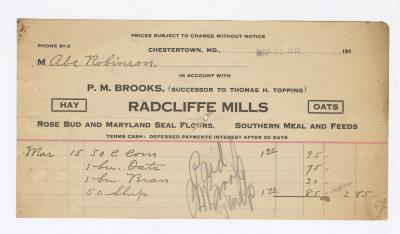 PRICES SUBJECT TO CHANGE WITHOUT NOTICE
PHONE 81-2
CHESTERTOWN, MD., MAR 1915 191
M Abe Robinson.
IN ACCOUNT WITH
P. M. BROOKS, (SUCCESSOR TO THOMAS H. TOPPING)
HAY RADCLIFFE MILLS OATS
ROSE BUD AND MARYLAND SEAL FLOURS. SOUTHERN MEAL AND FEEDS
TERMS CASH: DEFERRED PAYMENTS INTEREST AFTER 30 DAYS
Mar 15 50 C Corn 95
1 bu. Oats 75
1 bu. Bran 30
50 Ship 1.70 85 2 85
Paid